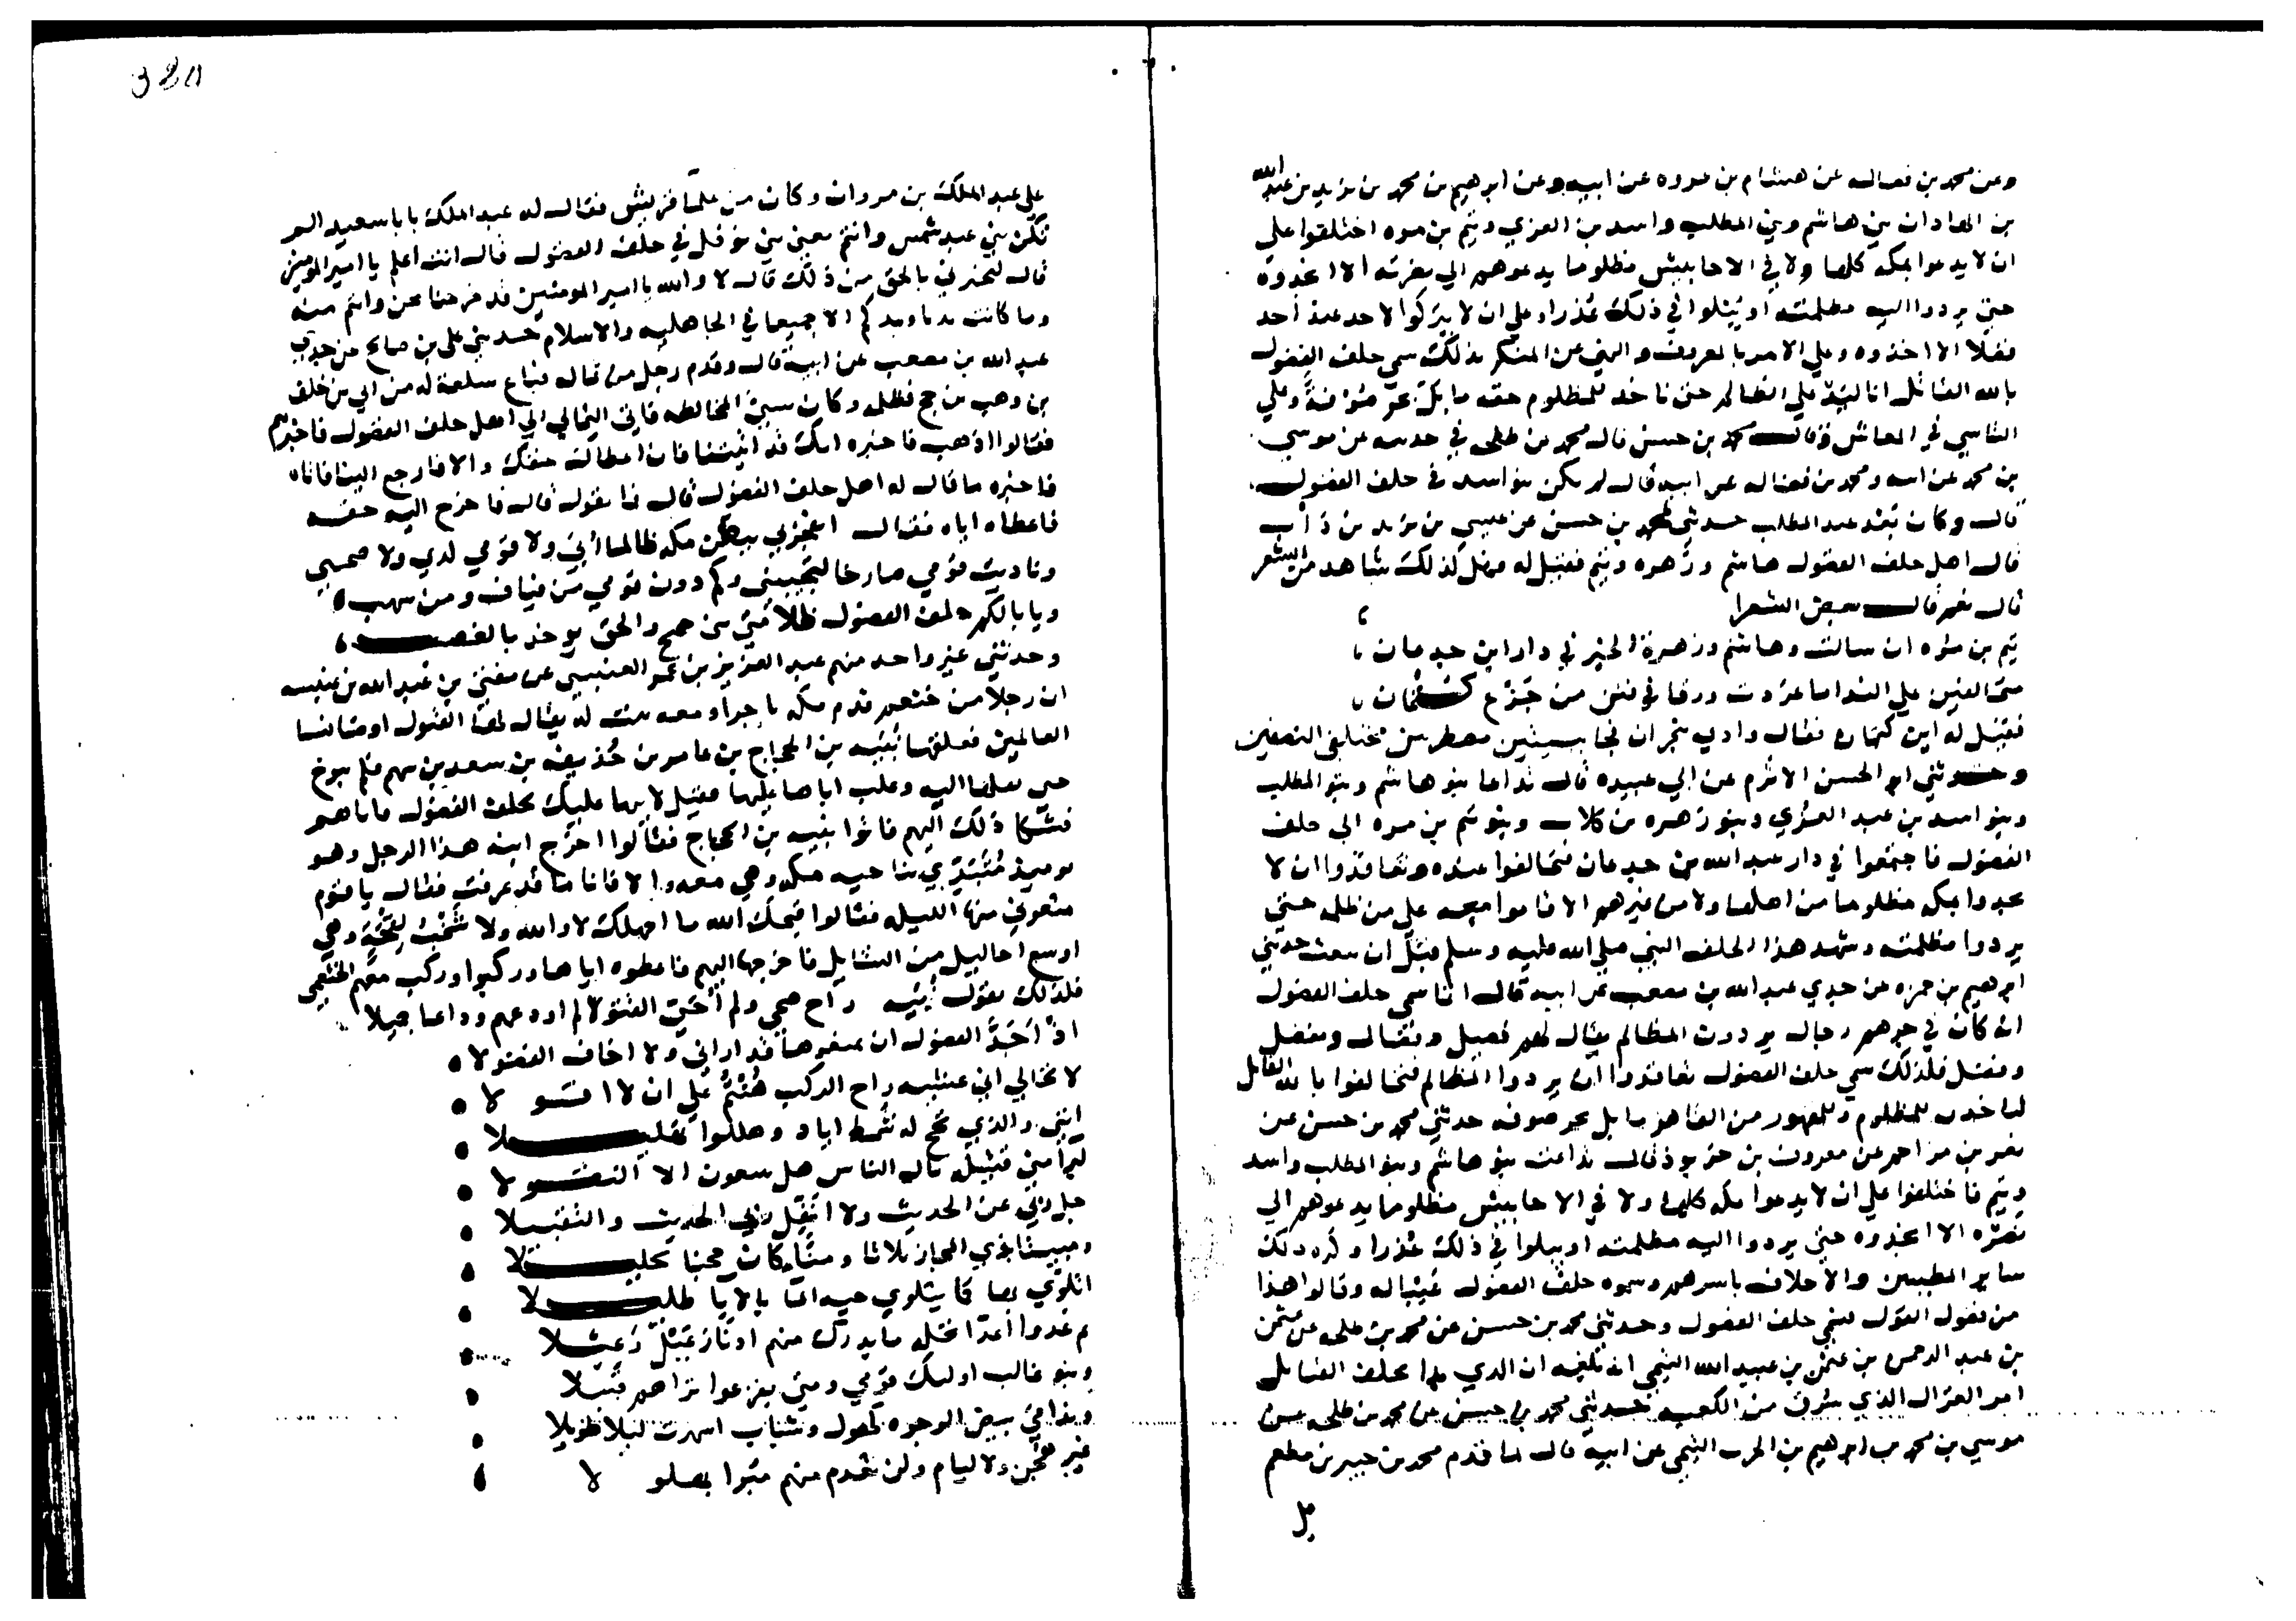 وعن محمد بن فضاله عن هشام بن عروه عن ابيه وعن ابرهيم بن محمد بن يزيد بن عبد الله
بن الهاد ان بني هاشم وبني المطلب واسد بن العزي وتيم بن مره اختلفوا علي
ان لا يدعوا بمكه كلها ولا في الاحابيش مظلوما يدعوهم الي نصرته الا انجدوه
حتي يردوا اليه مظلمته او يبلوا في ذلك عذرا وعلي ان لا يتركوا لاحد عند أحد
فضلا الا اخذوه وعلي الامر بالمعروف والنهي عن المنكر بذلك سمي حلف الفضول
بالله القائل انا ليد علي الظالم حتي ناخذ للمظلوم حقه ما بل بحر صوفة وعلي
التاسي في المعاش وقال محمد بن حسن قال محمد بن طلحي في حديثه عن موسي
بن محمد عن ابيه ومحمد بن فضاله عن ابيه قال لم يكن بنو اسد في حلف الفضول
قال وكان بعد عبد المطلب حدثني محمد بن حسن عن عيسي بن يزيد بن دأب
قال اهل حلف الفضول هاشم وزهره وتيم فقيل له فهل لذلك شاهد من الشعر
قال نعم قال بعض الشعرا
تيم بن مره ان سالت وهاشم وزهرة الخير في دار ابن جدعان
متحالفين علي الندا ما غردت ورقا في فنن من جذع كتمان
فقيل له اين كتمان فقال وادي بنجران فجا ببيتين مضطربين مختلفي النصفين
وحدثني ابو الحسن الاثرم عن ابي عبيده قال تداعا بنو هاشم وبنو المطلب
وبنو اسد بن عبد العزي وبنو زهره بن كلاب وبنو تيم بن مره الي حلف
الفضول فاجتمعوا في دار عبد الله بن جدعان فتحالفوا عنده وتعاقدوا ان لا
يجدوا بمكه مظلوما من اهلها ولا من غيرهم الا قاموا معه علي من ظلمه حتي
يردوا مظلمته وشهد هذا الحلف النبي صلي الله عليه وسلم قبل ان يبعث حدثني
ابرهيم بن حمزه عن جدي عبد الله بن مصعب عن ابيه قال انما سمي حلف الفضول
انه كان في جرهم رجال يردون المظالم يقال لهم فضيل وفضال ومفضل
وفضل فلذلك سمي حلف الفضول تعاقدوا ان يردوا المظالم فتحالفوا بالله القائل
لناخذن للمظلوم وللمقهور من القاهر ما بل بحر صوفه حدثني محمد بن حسن عن
نصر بن مزاحم عن معروف بن خربوذ قال تداعت بنو هاشم وبنو المطلب واسد
وتيم فاختلفوا علي ان لا يدعوا بمكه كلها ولا في الاحابيش مظلوما يدعوهم الي
نصره الا انجدوه حتي يردوا اليه مظلمته او يبلوا في ذلك عذرا وكره ذلك
ساير المطيبين والاحلاف باسرهم وسموه حلف الفضول عيبا له وقالوا هذا
من فضول القول فسمي حلف الفضول وحدثني محمد بن حسن عن محمد بن طلحه عن عثمن
بن عبد الرحمن بن عثمن بن عبيد الله التيمي انه بلغه ان الذي بدا بحلف الفضايل
امر الغزال الذي سرق من الكعبه حدثني محمد بن حسن عن محمد بن طلحه عن
موسي بن محمد بن ابرهيم بن الحرث التيمي عن ابيه قال لما قدم محمد بن جبير بن مطعم
علي عبد الملك بن مروان وكان من علما قريش فقال له عبد الملك يا با سعيد الم
نكن بني عبد شمس وانتم يعني بني نوفل في حلف الفضول قال انت اعلم يا امير المومنين
قال لتخبرني بالحق من ذلك قال لا والله يا امير المومنين قد خرجنا نحن وانتم منه
وما كانت يدنا ويدكم الا جميعا في الجاهليه والاسلام حدثني علي بن صالح عن جدي
عبد الله بن مصعب عن ابيه قال وقدم رجل من ثماله فباع سلعة له من ابي بن خلف
بن وهب بن جمح فظلمه وكان سيئ المخالطه فاتي الثمالي الي اهل حلف الفضول فاخبرهم
فقالوا اذهب فاخبره انك قد اتيتنا فان اعطاك حقك والا فارجع الينا فاتاه
فاخبره ما قال له اهل حلف الفضول قال فما تقول قال فاخرج اليه حقه
فاعطاه اياه فقال ايفجر بي ببطن مكه ظالما ابي ولا قومي لدي ولا صحبي
وناديت قومي صارخا لتجيبني وكم دون قومي من فياف ومن سهب
ويابا لكم حلف الفضول ظلامتي بني جمح والحق يوخذ بالغصب
وحدثني غير واحد منهم عبد العزيز بن عمر العنبسي عن مغني بن عبد الله بن عنبسه
ان رجلا من خثعم قدم مكه تاجرا ومعه بنت له يقال لها القتول اوضا نسا
العالمين فعلقها نبيه بن الحجاج بن عامر بن حذيفه بن سعد بن سهم فلم يبرح
حتي نقلها اليه وغلب اباها عليها فقيل لابيها عليك بحلف الفضول فاتاهم
فشكا ذلك اليهم فاتوا نبيه بن الحجاج فقالوا اخرج ابنة هذا الرجل وهو
يوميذ متبدي بناحيه مكه وهي معه والا فانا من قد عرفت فقال يا قوم
متعوني منها الليله فقالوا قبحك الله ما اجهلك لا والله ولا شخب لقحة وهي
اوسع احاليل من الشايل فاخرجها اليهم فاعطوه اياها وركبوا وركب معهم الخثعمي
فلذلك يقول نبيه راح صحبي ولم أحي القتولا لم اودعهم وداعا جميلا
اذ أجد الفضول ان يمنعوها قد اراني ولا اخاف الفضولا
لا تخالي اني عشيه راح الركب هنتم علي ان لا اقولا
انني والذي تحج له شمط اياد وهللوا تهليلا
لبرا مني قتيله يال الناس هل تبعون الا القتولا
ومبيتا بذي المجاز ثلاثا ومتا كان حجنا تحليلا
وبنو غالب اوليك قومي ومتي يفزعوا تراهم قبيلا
وندامي بيض الوجوه كهول وشباب اسهرت ليلا طويلا
غير هجن ولا ليام ولن تعدم منهم